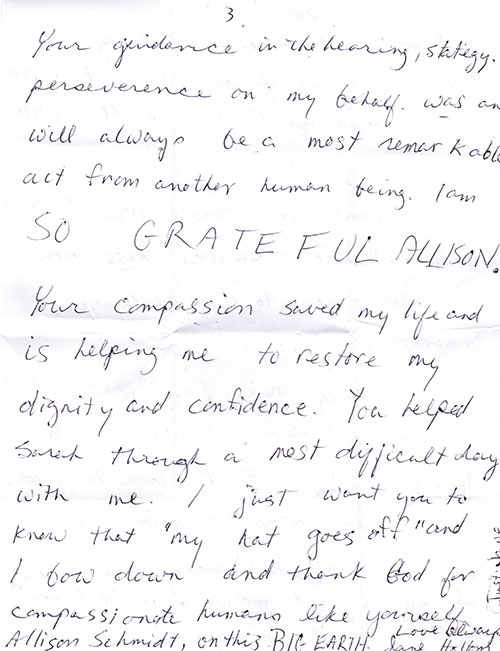 3.
Your guidance in the hearing, stategy.
perseverence on my behalf. was an
will always be a most remarkable
act from another human being. I am
SO GRATEFUL ALLISON.
Your compassion saved my life and
is helping me to restore my
dignity and confidence. You helped
Sarah through a most difficult day
with me. I just want you to
know that "my hat goes off" and
I bow down and thank God for
compassionate humans like yourself
Allison Schmidt, on this BIG EARTH.
Love always
Jane